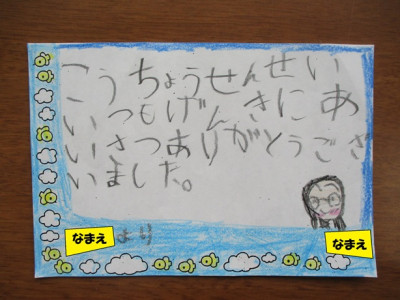 こうちょうせんせい
いつもげんきにあ
いさつありがとうござ
いました。
なまえ より
なまえ